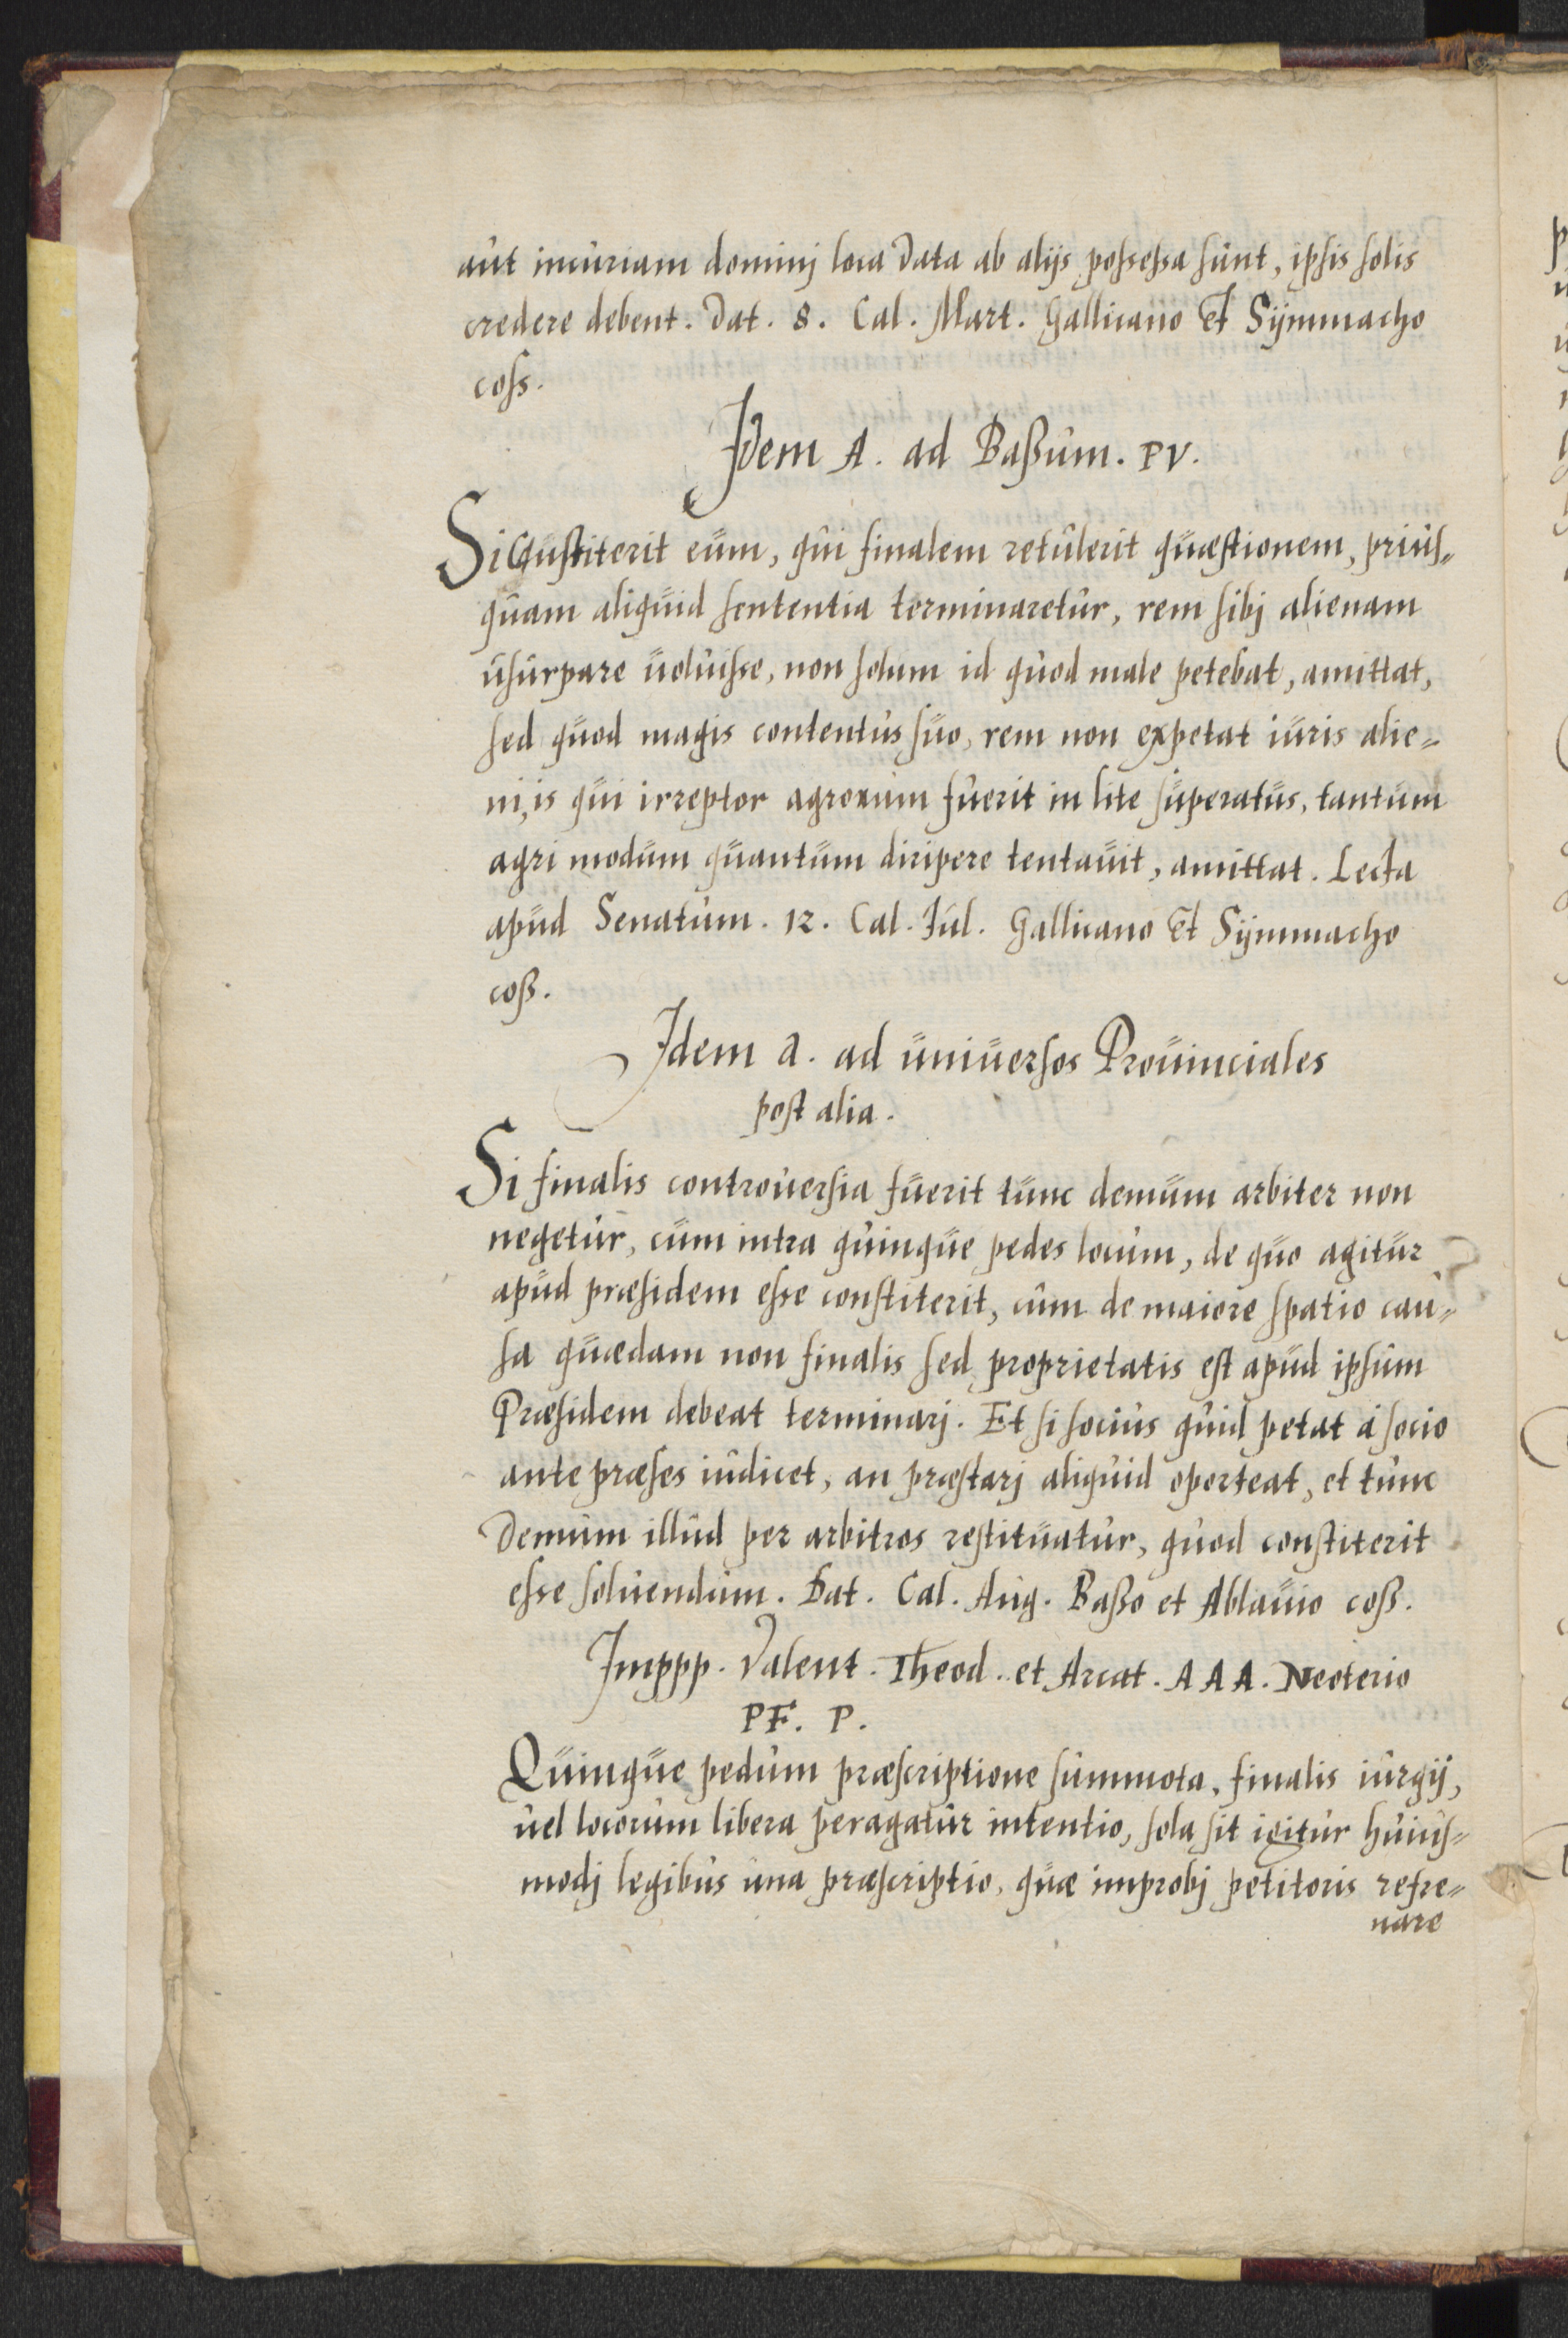 aut incuriam dominj loca data ab alijs possessa sunt, ipsis solis
credere debent. Dat. 8. Cal. Mart. Gallicano Et Sÿmmacho
coss.
Idem A. ad Baßum. PV.
Si Constiterit eum, qui finalem retulerit quæstionem, prius=
quam aliquid sententia terminaretur, rem sibj alienam
usurpare uoluisse, non solum id quod male petebat, amittat,
sed quod magis contentus suo, rem non expetat iuris alie=
ni, is qui irreptor agrorum fuerit in lite superatus, tantum
agri modum quantum diripere tentauit, amittat. Lecta
apud Senatum. 12. Cal. Jul. Gallicano Et Sÿmmacho
coß.
Idem A. ad uniuersos Prouinciales
post alia.
Si finalis controuersia fuerit tunc demum arbiter non
negetur, cum intra quinque pedes locum, de quo agitur
apud præsidem esse constiterit, cum de maiore spatio cau=
sa quædam non finalis sed proprietatis est apud ipsum
Præsidem debeat terminarj. Et si socius quid petat á socio
ante præses iudicet, an præstarj aliquid oporteat, et tunc
demum illud per arbitros restituatur, quod constiterit
esse soluendum. Dat. Cal. Aug. Baßo et Ablauio coß.
Imppp. Valent. Theod. et Arcat. A A A. Neoterio
PF. P.
Quinque pedum præscriptione summota, finalis iurgij,
uel locorum libera peragatur intentio, sola sit igitur huius=
modj legibus una præscriptio, quæ improbj petitoris refre=
nare